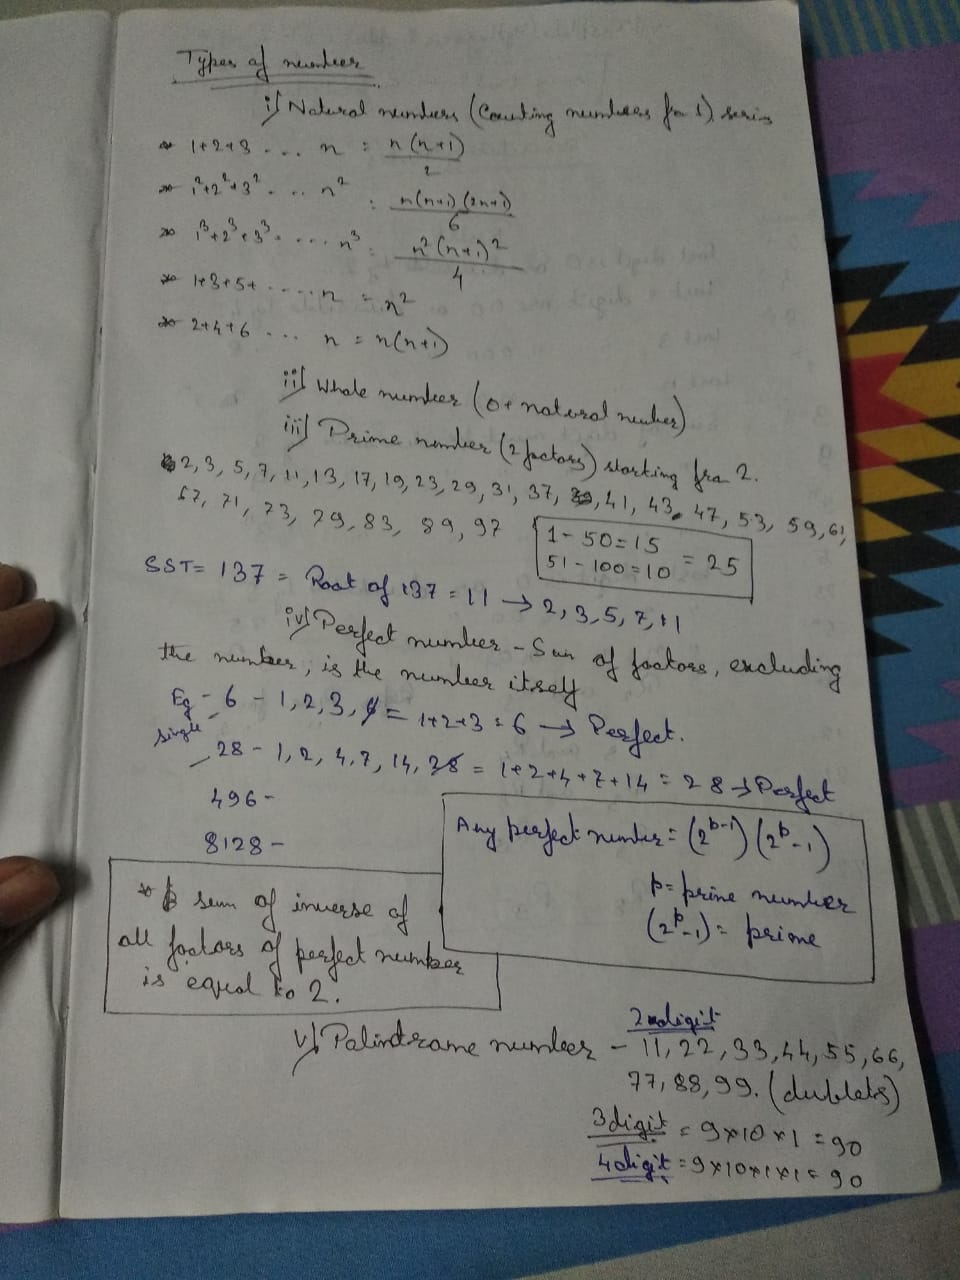 Types of number
i) Natural numbers (Counting numbers fr 1) series
* 1+2+3 ... n = n(n+1)/2
* 1²+2²+3² ... n² = n(n+1)(2n+1)/6
* 1³+2³+3³ ... n³ = n²(n+1)²/4
* 1+3+5+ ..... n = n²
* 2+4+6 ... n = n(n+1)
ii) Whole number (0+ natural number)
iii) Prime number (2 factors) starting from 2.
2, 3, 5, 7, 11, 13, 17, 19, 23, 29, 31, 37, 41, 43, 47, 53, 59, 61,
67, 71, 73, 79, 83, 89, 97
1 - 50 = 15
51 - 100 = 10 = 25
SST = 137 = Root of 137 = 11 → 2, 3, 5, 7, 11
iv) Perfect number - Sum of factors, excluding
the number, is the number itself
Eg - 6 - 1, 2, 3, 6 = 1+2+3 = 6 → Perfect.
single
28 - 1, 2, 4, 7, 14, 28 = 1+2+4+7+14 = 28 → Perfect
496 -
8128 -
Any perfect number = (2^(p-1)) (2^p - 1)
p = prime number
(2^p - 1) = prime
* sum of inverse of
all factors of perfect number
is equal to 2.
v) Palindrame number - 2 digit 11, 22, 33, 44, 55, 66,
77, 88, 99. (dublets)
3 digit = 9×10×1 = 90
4 digit = 9×10×1×1 = 90